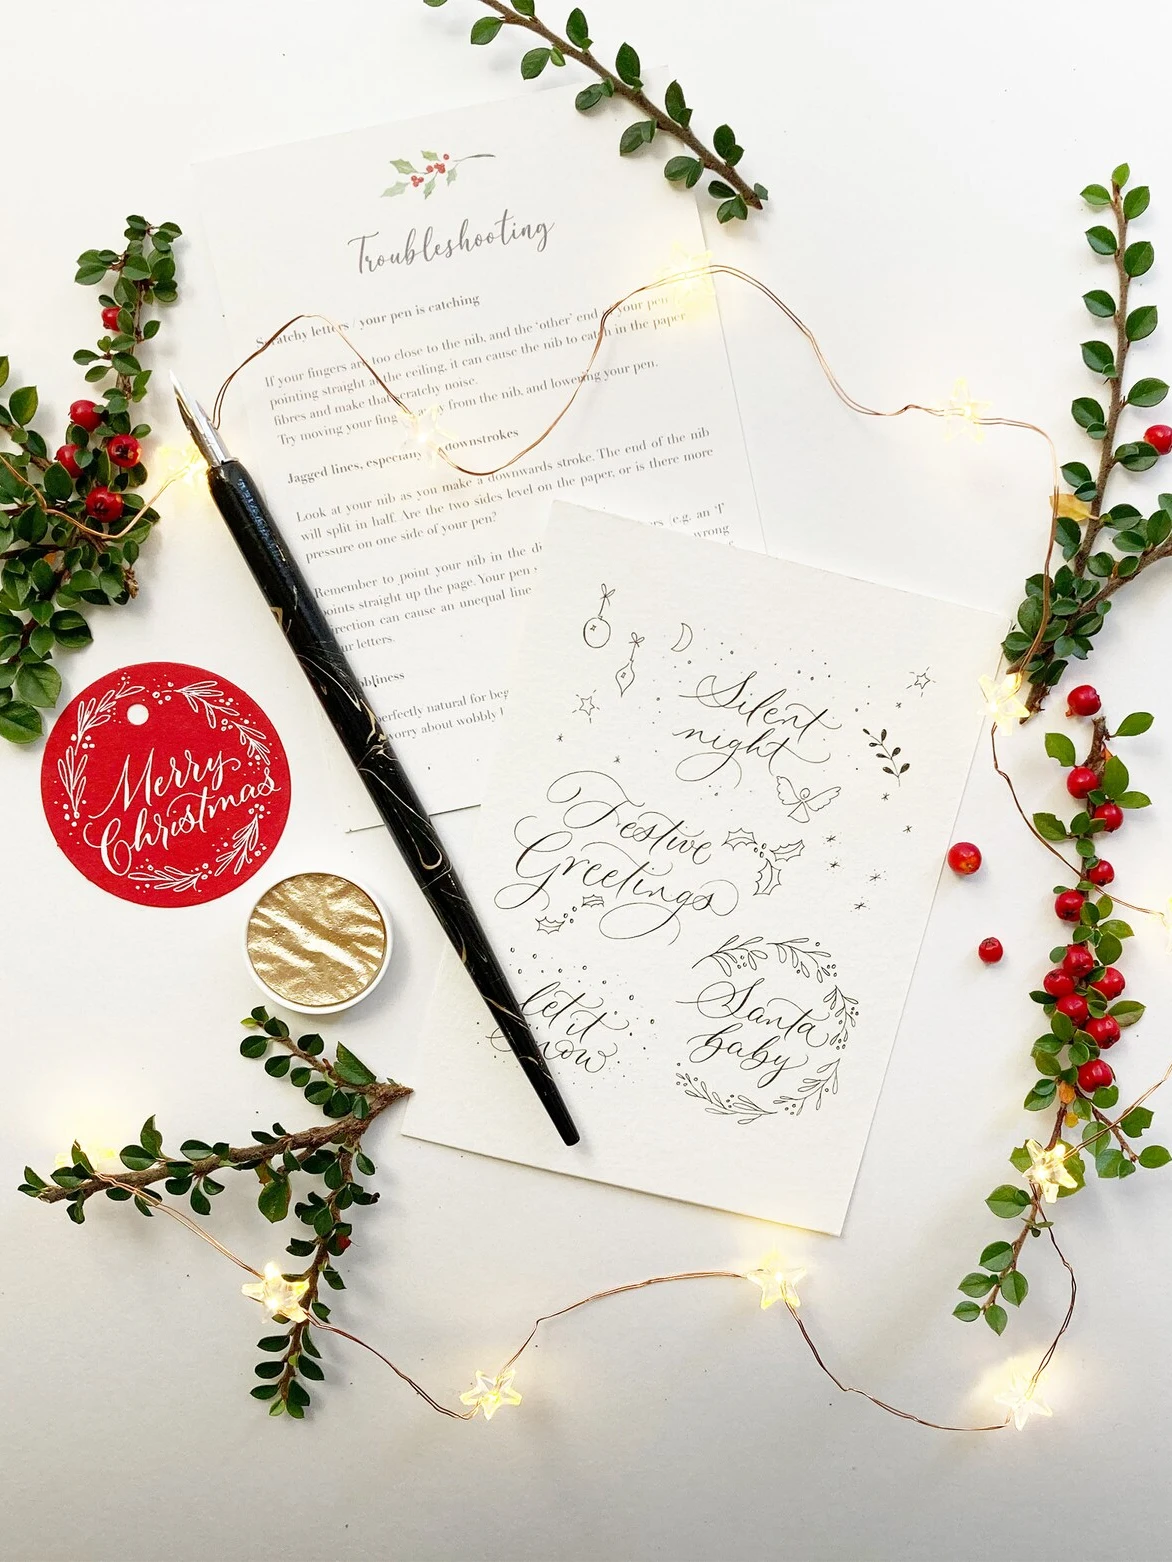 Troubleshooting
Scratchy letters / your pen is catching
If your fingers are too close to the nib, and the 'other' end of your pen
pointing straight at the ceiling, it can cause the nib to catch in the paper
fibres and make that scratchy noise.
Try moving your from the nib, and lowering your pen.
Jagged lines, especially downstrokes
Look at your nib as you make a downwards stroke. The end of the nib
will split in half. Are the two sides level on the paper, or is there more
pressure on one side of your pen?
(e.g. an 'I'
Remember to point your nib in the wrong
points straight up the page. Your pen
direction can cause an unequal line
your letters.
perfectly natural for
worry about wobbly
Merry
Christmas
Silent
night
Festive
Greetings
let it
snow
Santa
baby